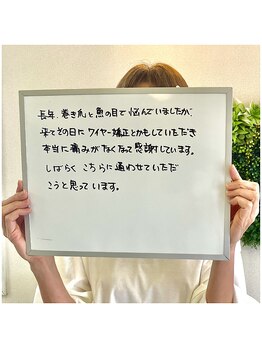 長年、巻き爪と魚の目で悩んでいましたが、
来てその日にワイヤー矯正とかもしていただき
本当に痛みがなくなって感謝しています。
しばらくこちらに通わせていただ
こうと思っています。